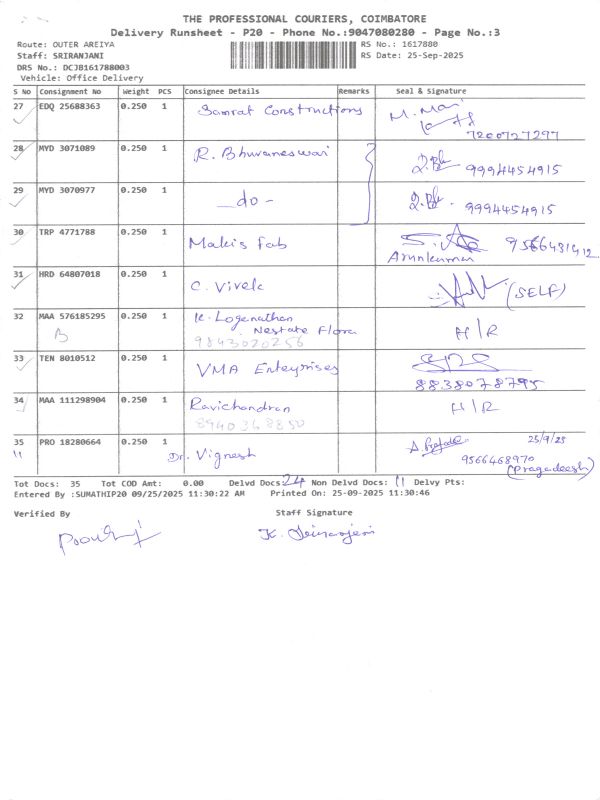 THE PROFESSIONAL COURIERS, COIMBATORE
Delivery Runsheet - P20 - Phone No.:9047080280 - Page No.:3
Route: OUTER AREIYA RS No.: 1617880
Staff: SRIRANJANI RS Date: 25-Sep-2025
DRS No.: DCJB161788003
Vehicle: Office Delivery
S No Consignment No Weight PCS Consignee Details Remarks Seal & Signature
27 EDQ 25688363 0.250 1 Samrat Constructions M. Mari
7200727297
28 MYD 3071089 0.250 1 R. Bhuvaneswari 9994454915
29 MYD 3070977 0.250 1 -do- 9994454915
30 TRP 4771788 0.250 1 Makis Fab 9566431412
Arunkumar
31 HRD 64807018 0.250 1 C. Vivek (SELF)
32 MAA 576185295 0.250 1 K. Loganathan
B Nestate Flora H/R
9843020256
33 TEN 8010512 0.250 1 VMA Enterprises
8838078795
34 MAA 111298904 0.250 1 Ravichandran H/R
8940368850
35 PRO 18280664 0.250 1 Dr. Vignesh 25/9/25
11 9566468970
(Pragadeesh)
Tot Docs: 35 Tot COD Amt: 0.00 Delvd Docs: 24 Non Delvd Docs: 11 Delvy Pts:
Entered By :SUMATHIP20 09/25/2025 11:30:22 AM Printed On: 25-09-2025 11:30:46
Verified By Staff Signature
K. Sriranjani